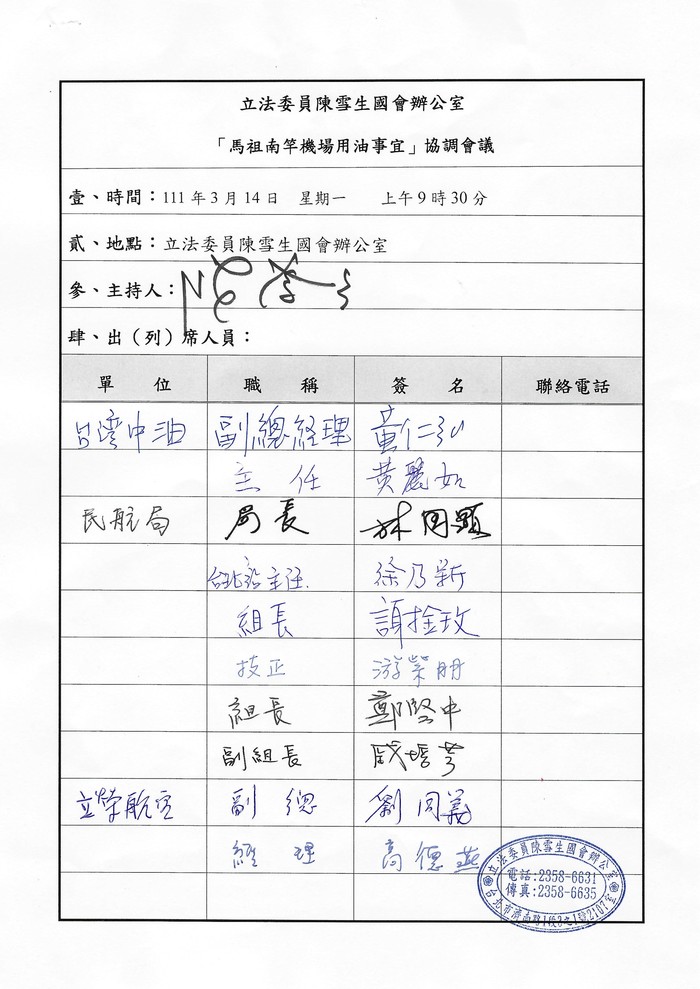 立法委員陳雪生國會辦公室
「馬祖南竿機場用油事宜」協調會議
壹、時間：111年3月14日 星期一 上午9時30分
貳、地點：立法委員陳雪生國會辦公室
參、主持人：
肆、出（列）席人員：
單 位 職 稱 簽 名 聯絡電話
台灣中油 副總經理 黃仁弘
主 任 黃麗如
民航局 局長 林國顯
台北站主任 徐乃新
組長
技正 游榮朋
組長 鄭堅中
副組長
立榮航空 副 總 劉同義
經 理 高德燕
立法委員陳雪生國會辦公室
電話:2358-6631
傳真:2358-6635
台北市濟南路1段3之1號2107室